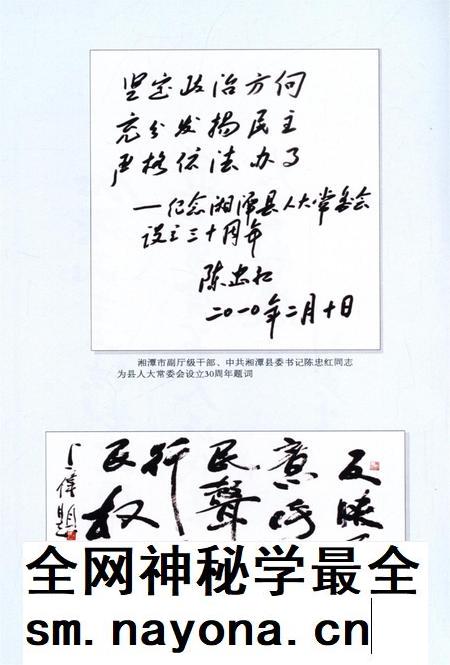 坚定政治方向
充分发扬民主
严格依法办事
——纪念湘潭县人大常委会
设立三十周年
陈忠红
二〇一〇年二月十日
湘潭市副厅级干部、中共湘潭县委书记陈忠红同志
为县人大常委会设立30周年题词
反映
意
民聲
行
民权
全网神秘学最全
sm.nayona.cn